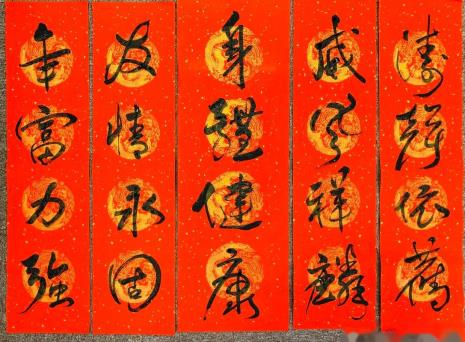 濤聲依舊
威風祥麟
身體健康
友情永固
年富力強